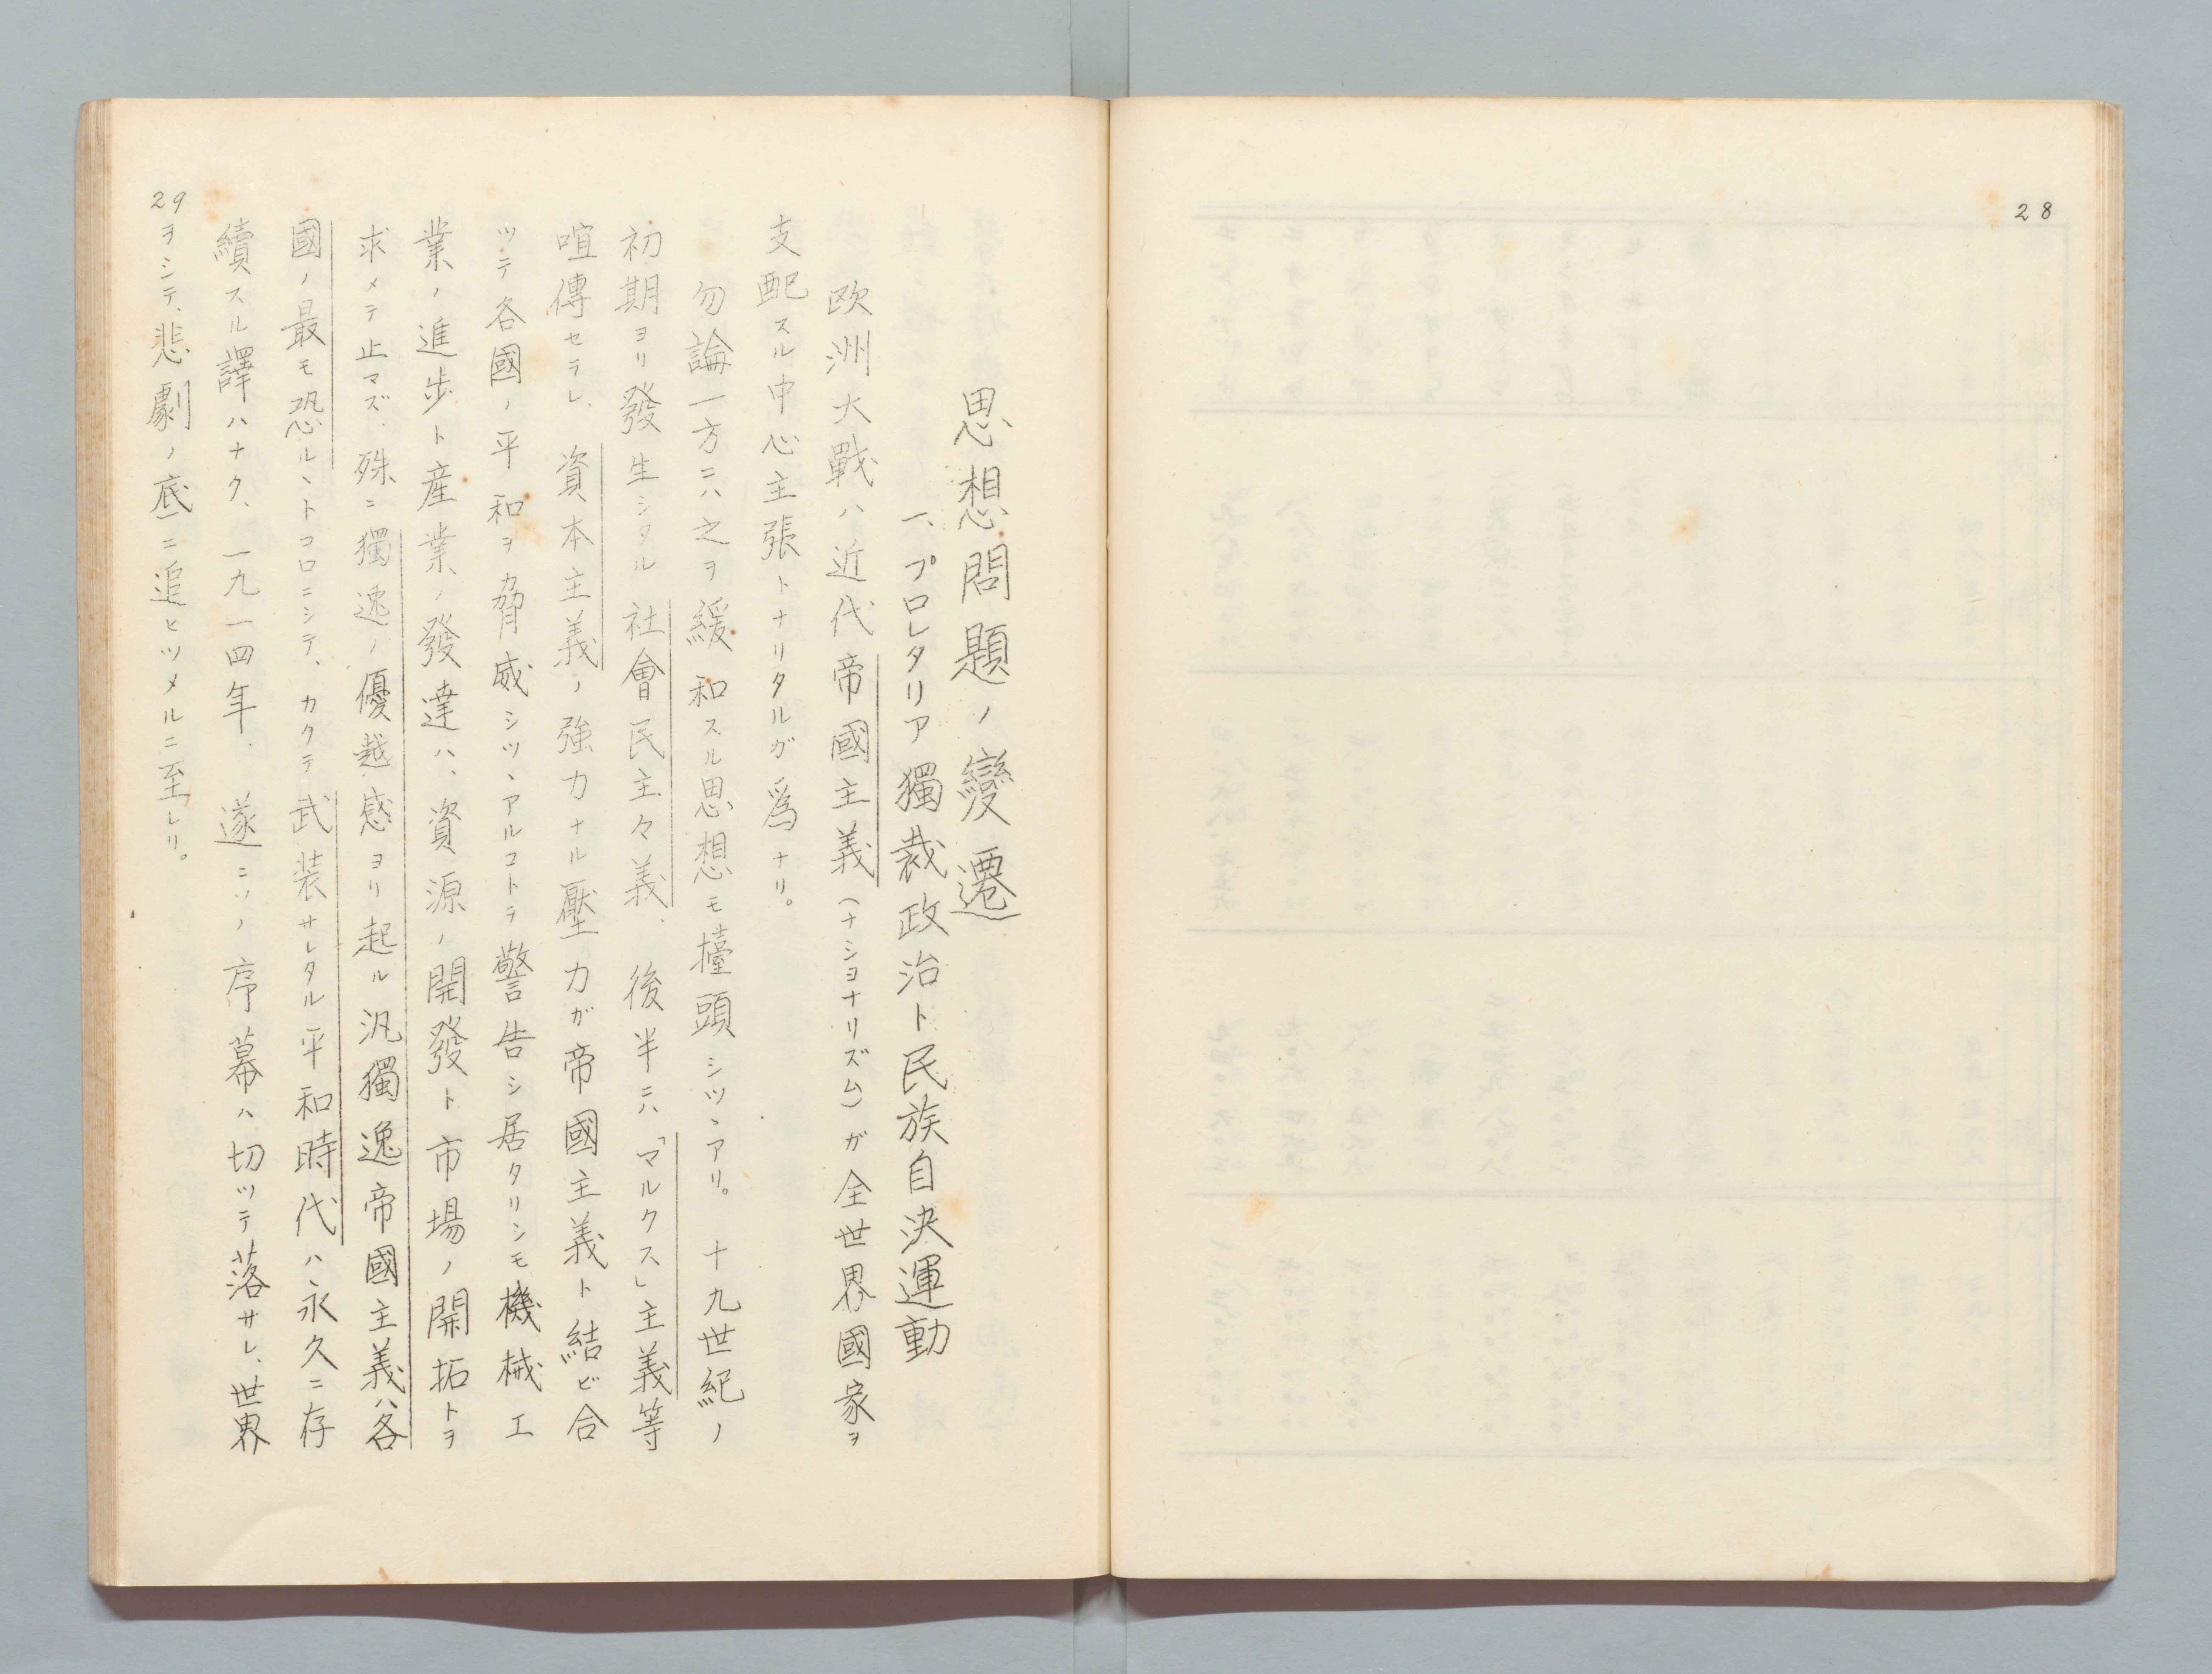 28
思想問題ノ變遷
一、プロレタリア獨裁政治ト民族自決運動
欧洲大戰ハ近代帝國主義(ナショナリズム)ガ全世界國家ヲ
支配スル中心主張トナリタルガ爲ナリ。
勿論一方ニハ之ヲ緩和スル思想モ擡頭シツヽアリ。十九世紀ノ
初期ヨリ發生シタル社會民主々義、後半ニハ「マルクス」主義等
喧傳セラレ、資本主義ノ強力ナル壓力ガ帝國主義ト結ビ合
ツテ各國ノ平和ヲ脅威シツヽアルコトヲ警告シ居タリシモ機械工
業ノ進歩ト産業ノ發達ハ、資源ノ開發ト市場ノ開拓トヲ
求メテ止マズ、殊ニ獨逸ノ優越感ヨリ起ル汎獨逸帝國主義ハ各
國ノ最モ恐ルヽトコロニシテ、カクテ武装サレタル平和時代ハ永久ニ存
續スル譯ハナク、一九一四年、遂ニソノ序幕ハ切ツテ落サレ、世界
ヲシテ、悲劇ノ底ニ追ヒツメルニ至レリ。
29